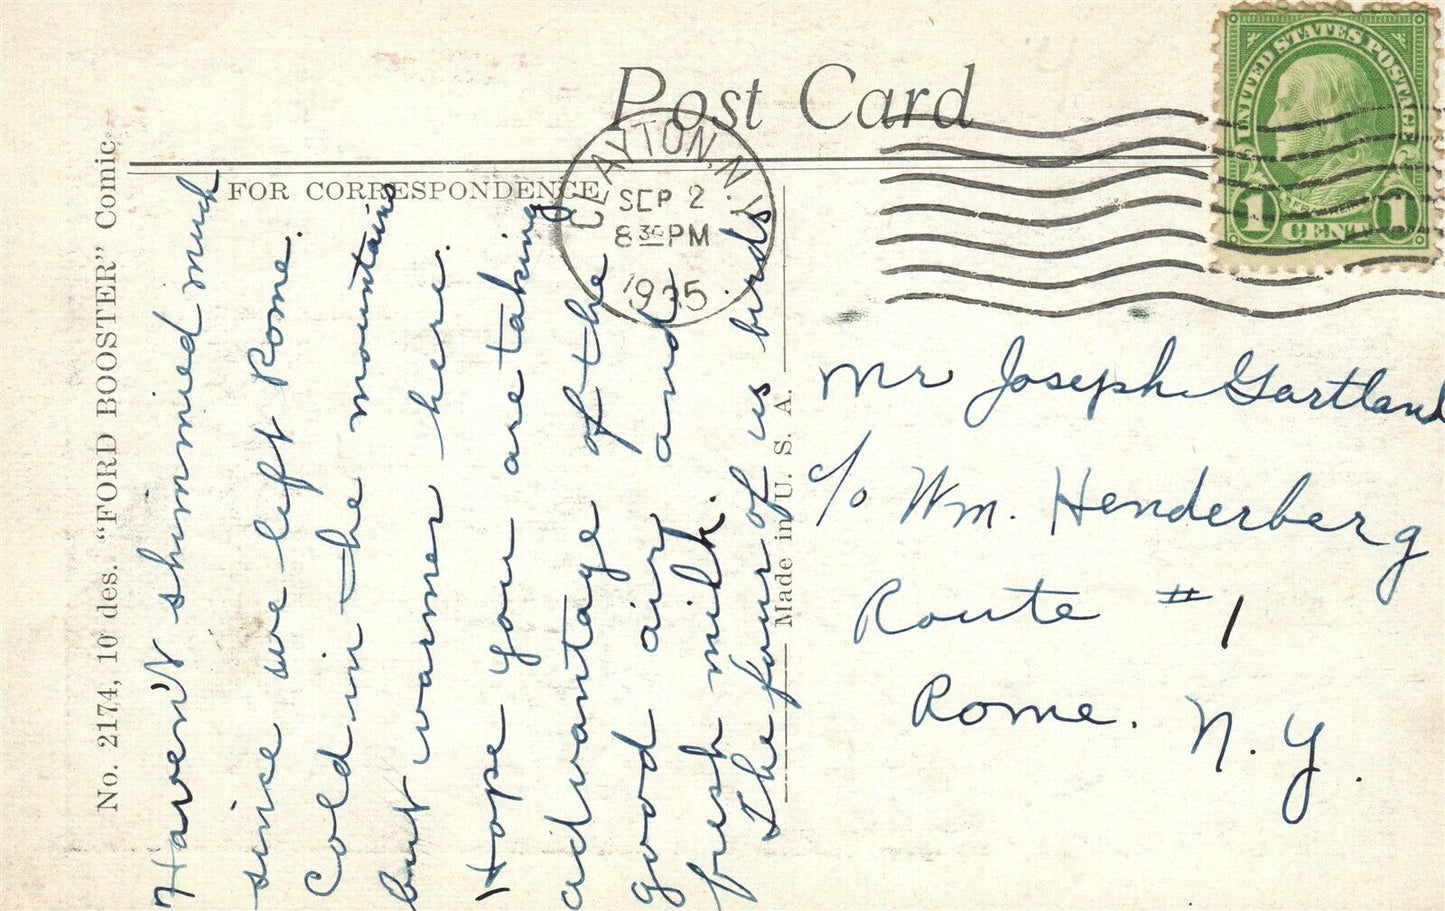 Post Card
FOR CORRESPONDENCE
CLAYTON, N.Y.
SEP 2
8 30 PM
1935
UNITED STATES POSTAGE
FRANKLIN
1 CENT 1
No. 2174, 10 des. "FORD BOOSTER" Comic
Haven't shimmied much
since we left Rome.
Cold in the mountains
but warmer here.
Hope you are taking
advantage of the
good air and
fresh milk.
The four of us birds
Made in U. S. A.
Mr Joseph Gartland
c/o Wm. Henderberg
Route #1
Rome. N.Y.